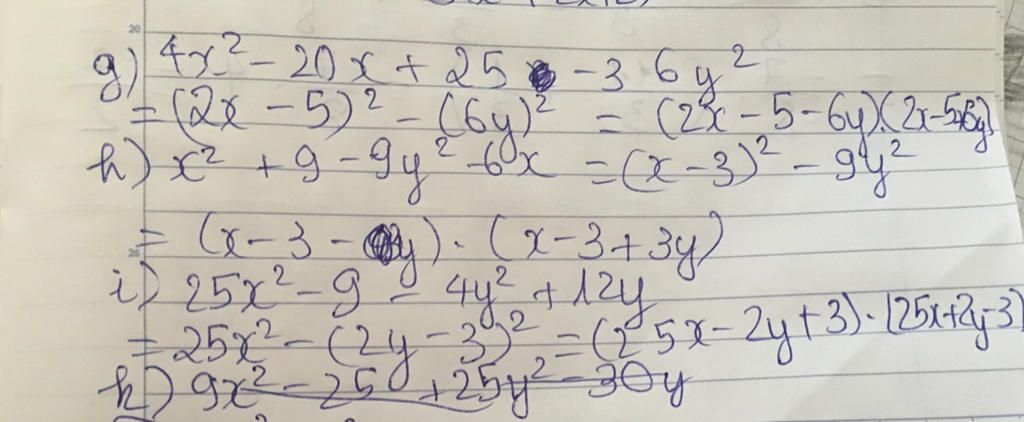 g) 4x² - 20x + 25 - 36y²
= (2x - 5)² - (6y)² = (2x - 5 - 6y).(2x - 5 + 6y)
h) x² + 9 - 9y² - 6x = (x - 3)² - 9y²
= (x - 3 - 3y) . (x - 3 + 3y)
i) 25x² - 9 - 4y² + 12y
= 25x² - (2y - 3)² = (25x - 2y + 3) . (25x + 2y - 3)
k) 9x² - 25 + 25y² - 30y